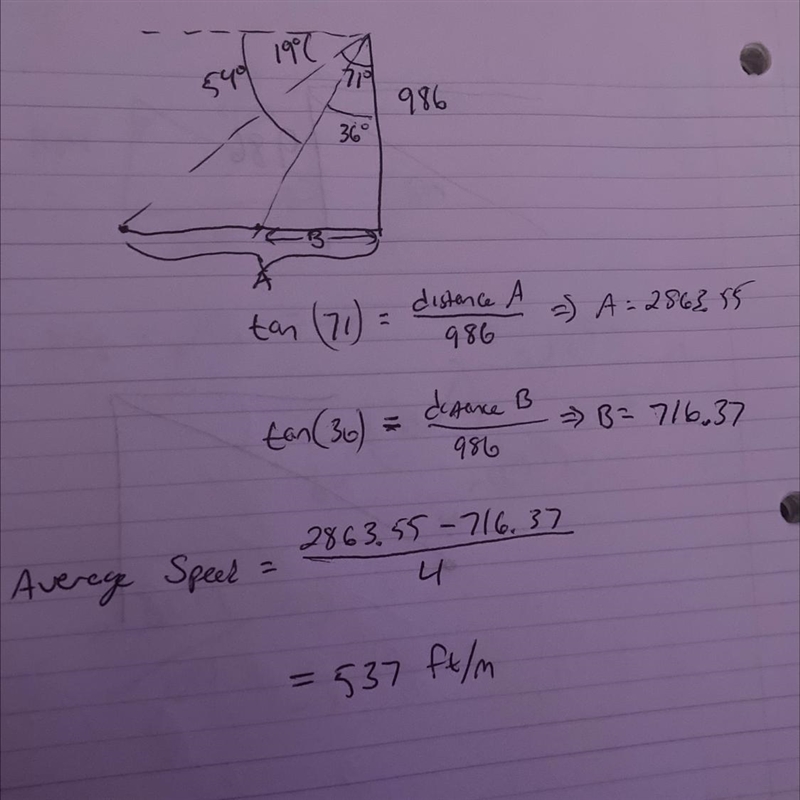 19°
54°
71°
986
36°
B
A
tan (71) = distance A / 986 ⇒ A = 2863.55
tan(36) = distance B / 986 ⇒ B = 716.37
Average Speed = 2863.55 - 716.37 / 4
= 537 ft/m